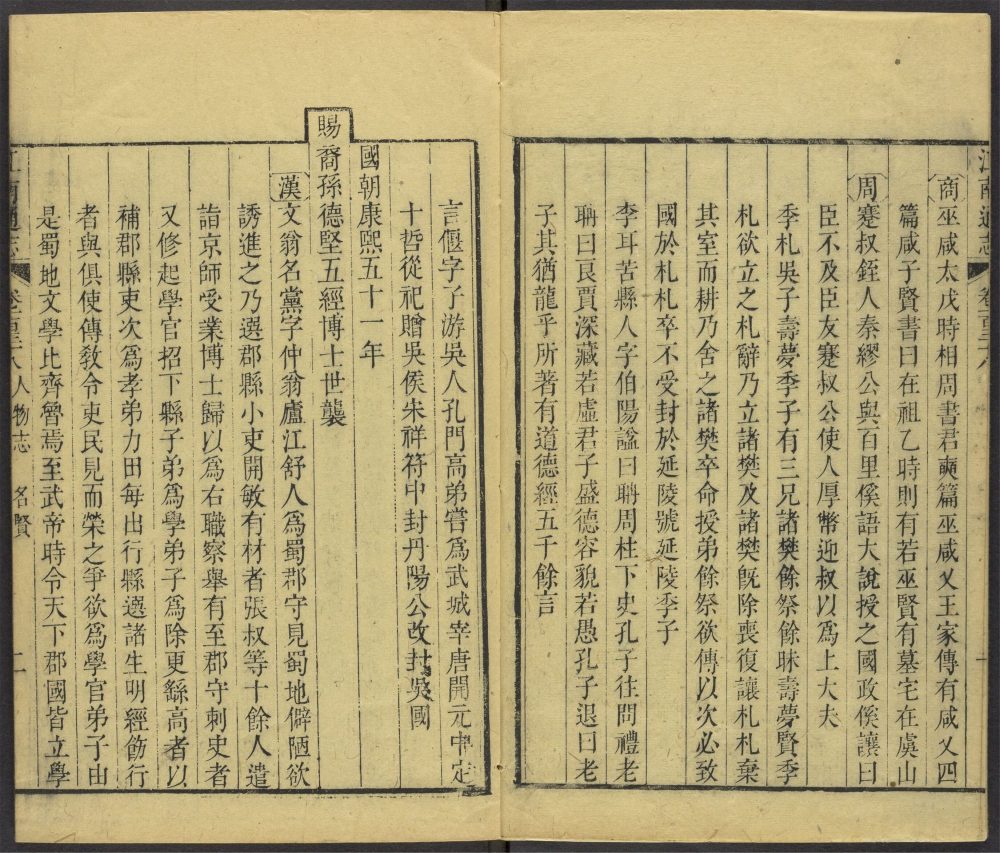 商巫咸太戊時相周書君奭篇巫咸乂王家傳有咸乂四
篇咸子賢書曰在祖乙時則有若巫賢有墓宅在虞山
周蹇叔銍人秦繆公與百里傒語大說授之國政傒讓曰
臣不及臣友蹇叔公使人厚幣迎叔以為上大夫
季札吳子壽夢季子有三兄諸樊餘祭餘昧壽夢賢季
札欲立之札辭乃立諸樊及諸樊旣除喪復讓札札棄
其室而耕乃舍之諸樊卒命授弟餘祭欲傳以次必致
國於札札卒不受封於延陵號延陵季子
李耳苦縣人字伯陽諡曰聃周柱下史孔子往問禮老
聃曰良賈深藏若虛君子盛德容貌若愚孔子退曰老
子其猶龍乎所著有道德經五千餘言
言偃字子游吳人孔門高弟嘗爲武城宰唐開元中定
十哲從祀贈吳侯宋祥符中封丹陽公改封吳國
國朝康熙五十一年
賜裔孫德堅五經博士世襲
漢文翁名黨字仲翁廬江舒人爲蜀郡守見蜀地僻陋欲
誘進之乃選郡縣小吏開敏有材者張叔等十餘人遣
詣京師受業博士歸以爲右職察舉有至郡守刺史者
又修起學官招下縣子弟爲學弟子爲除更繇高者以
補郡縣吏次爲孝弟力田每出行縣選諸生明經飭行
者與俱使傳敎令吏民見而榮之爭欲爲學官弟子由
是蜀地文學比齊魯焉至武帝時令天下郡國皆立學
江南通志 人物志 名賢 二